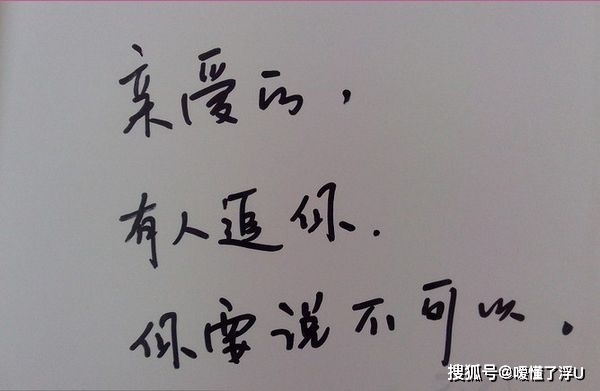 亲爱的，
有人追你.
你要说不可以.
搜狐号@嗳懂了浮U